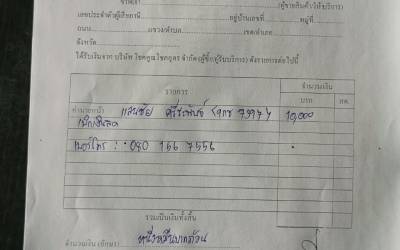 ข้าพเจ้า (ผู้ขายสินค้า/ให้บริการ)
เลขประจำตัวผู้เสียภาษี อยู่บ้านเลขที่ หมู่ที่
ถนน แขวง/ตำบล เขต/อำเภอ
จังหวัด
ได้รับเงินจาก บริษัท จำกัด (ผู้ซื้อ/ผู้รับบริการ) ดังรายการต่อไปนี้
รายการ จำนวนเงิน
บาท สต.
แสนชัย 10,000
เบอร์โทร : 080 166 7556
รวมเป็นเงินทั้งสิ้น
จำนวนเงิน (อักษร) หนึ่งหมื่นบาทถ้วน